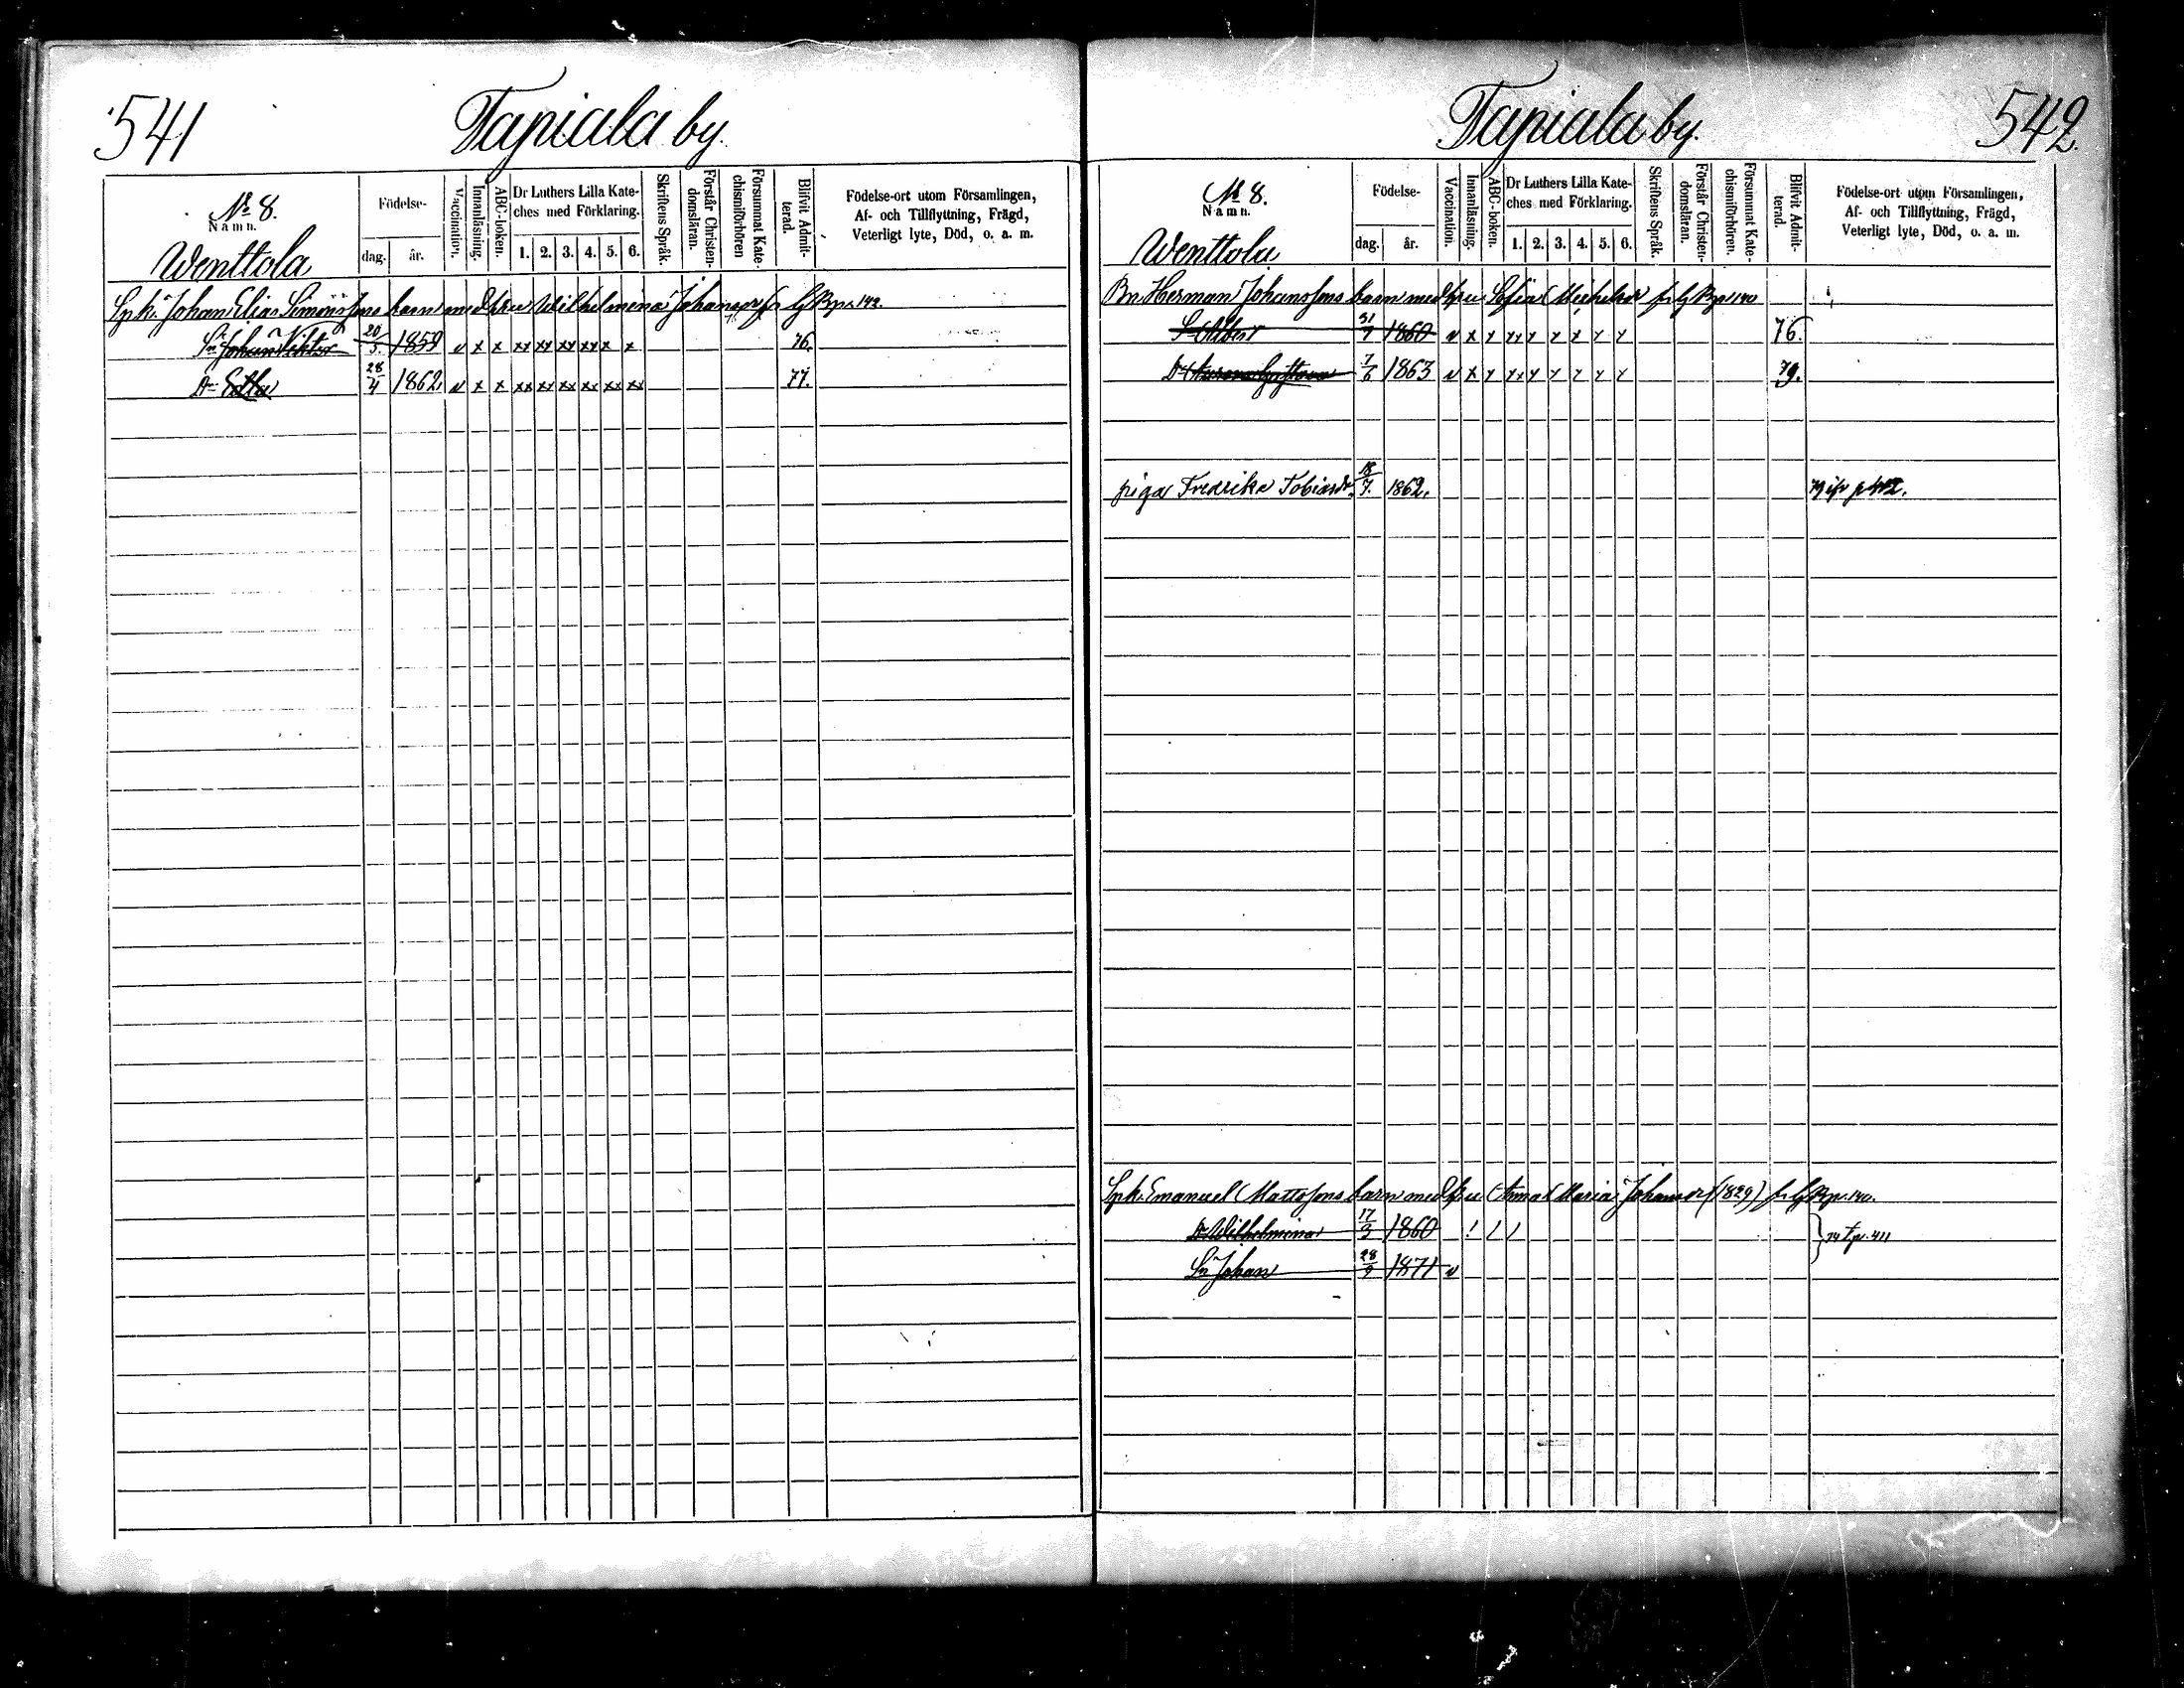 541
Tapiala by.
No 8.
Namn.
Wenttola
Födelse-
dag. år.
Vaccination.
Innanläsning.
ABC-boken.
Dr Luthers Lilla Kate-
ches med Förklaring.
1. 2. 3. 4. 5. 6.
Skriftens Språk.
Förstår Christen-
domsläran.
Försummat Kate-
chismiförhören
Blifvit Admit-
terad.
Födelse-ort utom Församlingen,
Af- och Tillflyttning, Frägd,
Veterligt lyte, Död, o. a. m.
Spk. Johan Elias Simonssons barn med hru Wilhelmina Johansdr fr. HB p. 142.
Sn Johan Viktor 20/3. 1859 v x x xx xx xx xx x x 76.
Dr Edla 28/4 1862. v x x xx xx xx xx xx xx 77.
Tapiala by.
542.
No 8.
Namn.
Wenttola
Födelse-
dag. år.
Vaccination.
Innanläsning.
ABC-boken.
Dr Luthers Lilla Kate-
ches med Förklaring.
1. 2. 3. 4. 5. 6.
Skriftens Språk.
Förstår Christen-
domsläran.
Försummat Kate-
chismiförhören.
Blifvit Admit-
terad.
Födelse-ort utom Församlingen,
Af- och Tillflyttning, Frägd,
Veterligt lyte, Död, o. a. m.
Bn. Herman Johanssons barn med hru Sofia Mickelsdr fr. HB p. 140
S. Albert 31/7 1860 v x x xx x x x x x 76.
Dr Gustava 7/6 1863 v x x xx x x x x x 79.
piga Fredrika Tobiasdr. 18/7. 1862.
Spk. Emanuel Mattssons barn med hru Anna Maria Johansdr (1829) fr. HB p. 140.
Dr Wilhelmina 17/3 1860 ! / /
} 74 p. 411
Sn Johan 28/9 1871 v